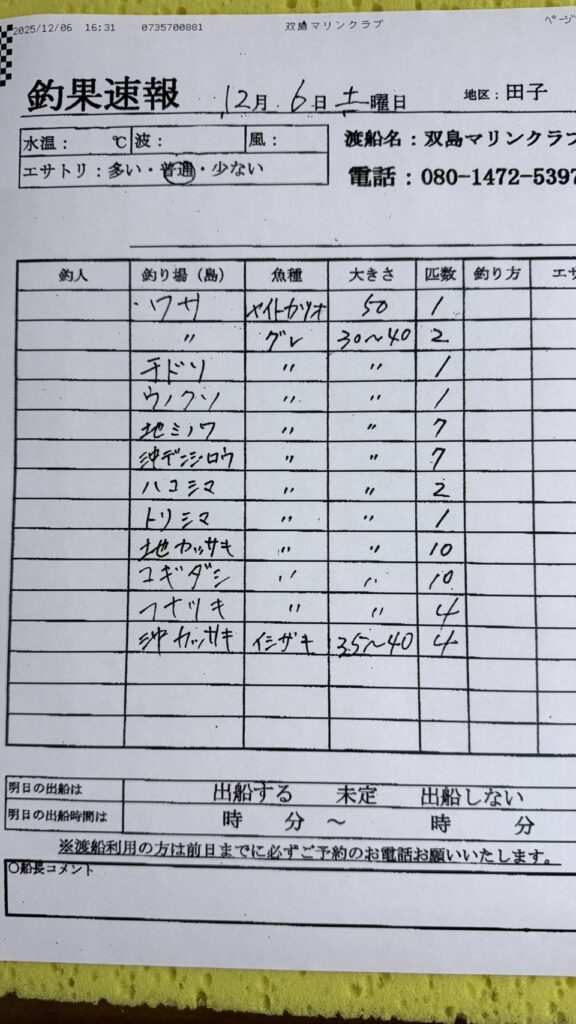 2025/12/06 16:31 0735700881 双島マリンクラブ ページ
釣果速報 12月 6日 土曜日 地区：田子
水温： ℃ 波： 風： 渡船名：双島マリンクラブ
エサトリ：多い・普通・少ない 電話：080-1472-5397
釣人 釣り場（島） 魚種 大きさ 匹数 釣り方 エサ
ワサ ヤイトカツオ 50 1
〃 グレ 30～40 2
チドリ 〃 〃 1
ウノクソ 〃 〃 1
地ミノワ 〃 〃 7
沖デンシロウ 〃 〃 7
ハコシマ 〃 〃 2
トリシマ 〃 〃 1
地カッサキ 〃 〃 10
コギダシ 〃 〃 10
フナツキ 〃 〃 4
沖カッサキ イシガキ 35～40 4
明日の出船は 出船する 未定 出船しない
明日の出船時間は 時 分 ～ 時 分
※渡船利用の方は前日までに必ずご予約のお電話お願いいたします。
○船長コメント